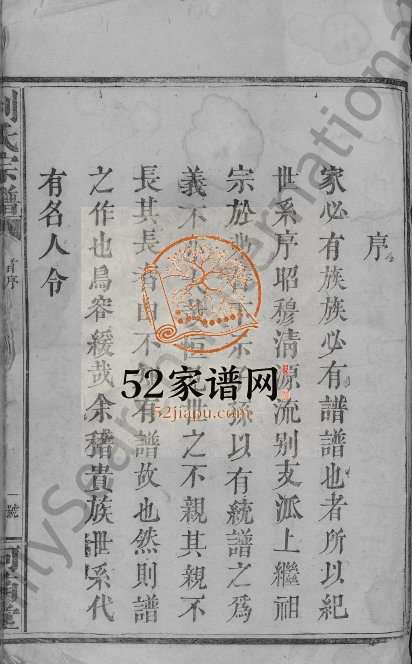 序
家必有族族必有譜譜也者所以紀
世系序昭穆清源流别支派上繼祖
宗於 以有統譜之爲
義不 大哉恒 世之不親其親不
長其長者由不 有譜故也然則譜
之作也烏容緩哉余稽貴族世系代
有名人令
劉氏宗譜
首序
一號
堂
52家谱网
52jiapu.com